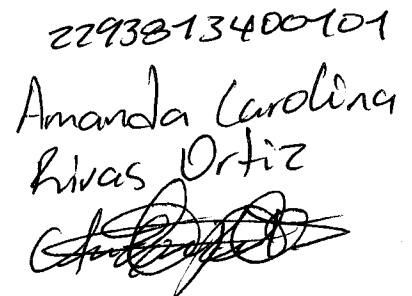 2293813400101
Amanda Carolina
Rivas Ortiz